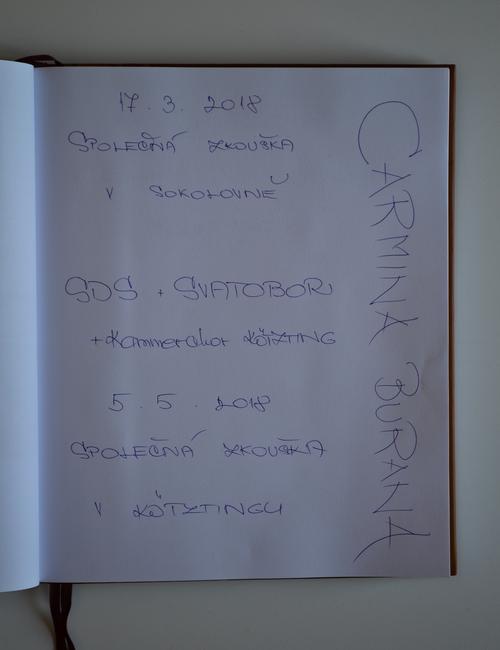 17. 3. 2018
SPOLEČNÁ ZKOUŠKA
V SOKOLOVNĚ
SDS + SVATOBOR
+ Kammerchor KÖTZTING
5. 5. 2018
SPOLEČNÁ ZKOUŠKA
V KÖTZTINGU
CARMINA BURANA